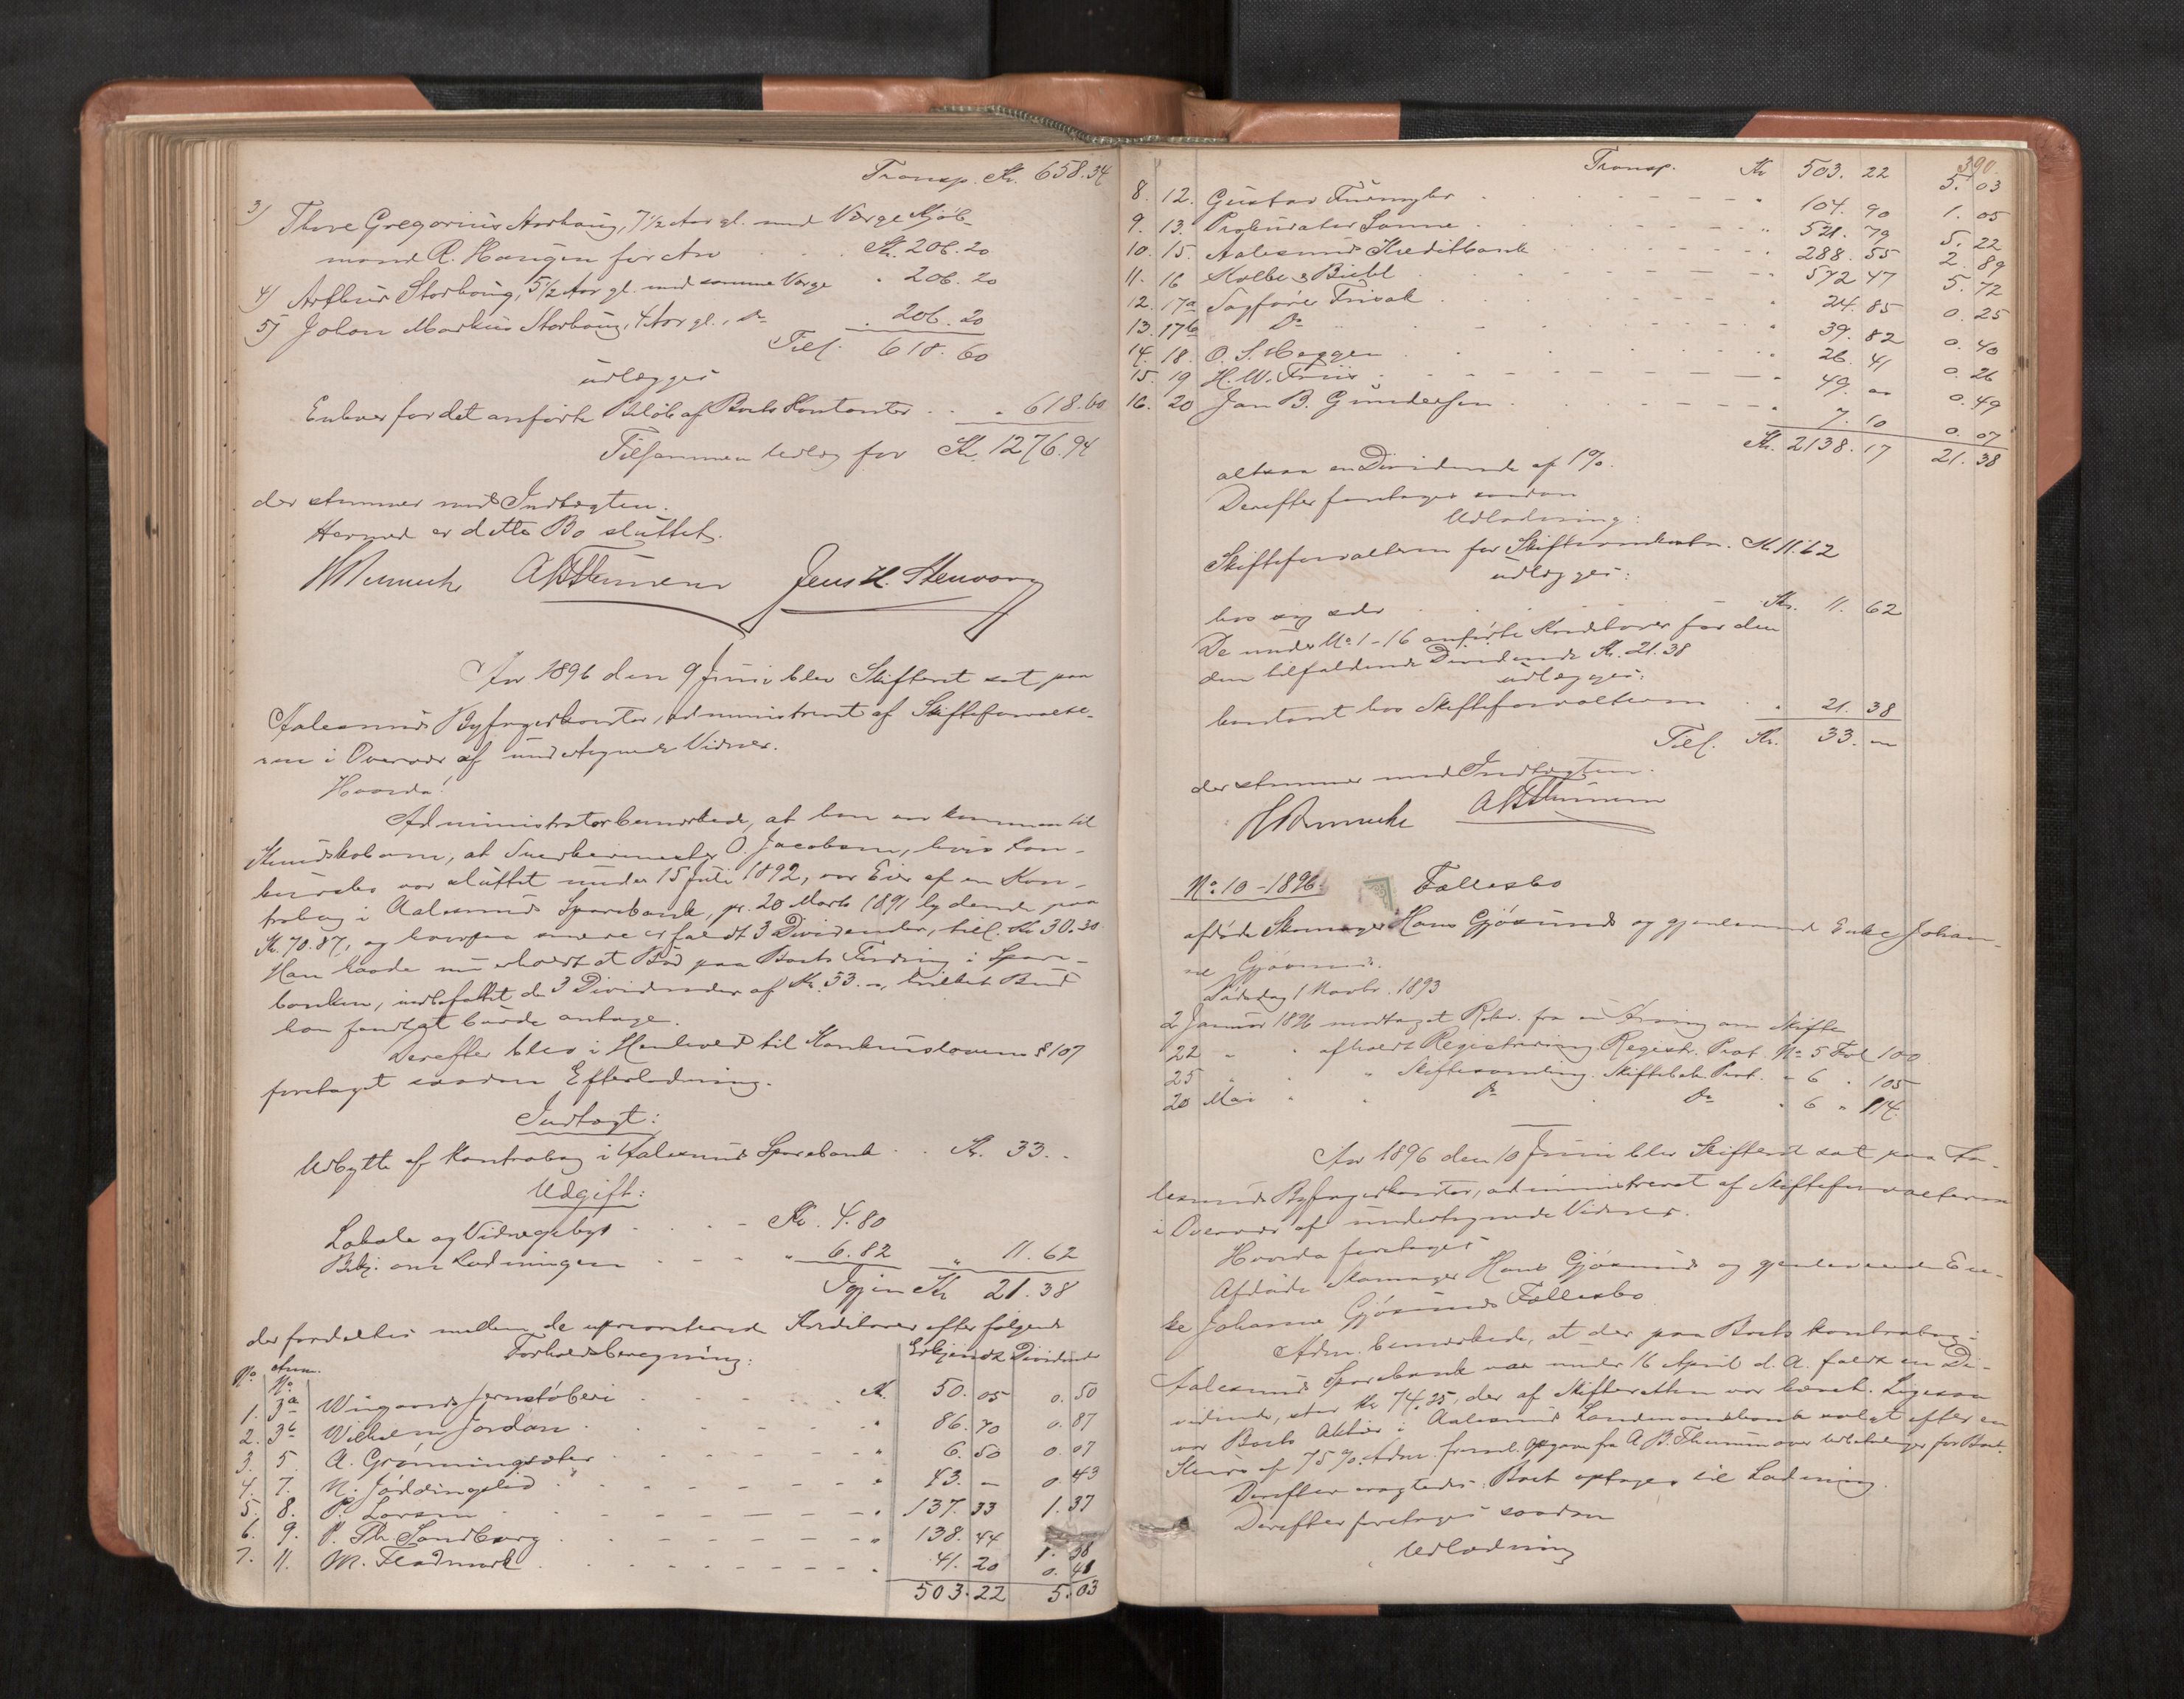 Transp. Kr. 658.34
3) Thore Gregorius Storhaug, 7 1/2 Aar gl. med Værge Kjøb-
mand R. Haugen for Arv . . . Kr. 206.20
4) Arthur Storhaug, 5 1/2 Aar gl. med samme Værge " 206.20
5) Johan Markus Storhaug, 4 Aar gl., Do . 206.20
Till. 618.60
udlægges
Enhver for det anførte Beløb af Boets Kontanter . . " 618.60
Tilsammen Udlæg for Kr. 1276.94
der stemmer med Indtægten.
Hermed er dette Bo sluttet.
Jens H. Stenvaag
Aar 1896 den 9 Juni blev Skifteret sat paa
Aalesunds Byfogedkontor, administreret af Skifteforvalte-
ren i Overvær af undertegnede Vidner.
Hvorda!
Administrator bemærkede, at han er kommen til
Kundskab om, at Snedkermester O. Jacobsen, hvis Kon-
kursbo var sluttet under 15 Juli 1892, var Eier af en Kon-
trabog i Aalesunds Sparebank, pr. 20 Marts 1891 lydende paa
Kr. 70.87, og hvorpaa senere er faldt 3 Dividender, till. Kr. 30.30
Han havde nu erholdt et Bud paa Boets Fordring i Spare-
banken, indbefattet de 3 Dividender af Kr. 33.-, hvilket Bud
han fandt at burde antage.
Derefter blev i Henhold til Konkursloven § 107
foretaget saadan Efterlodning.
Indtægt:
Udbytte af Kontrabog i Aalesunds Sparebank . . Kr. 33. -
Udgift:
Lokale og Vidnegebyr . . . - Kr. 4.80
Bekj. om Lodningen . - - - " 6.82 " 11.62
Igjen Kr 21.38
der fordeltes mellem de uprioriterede Kreditorer efter følgende
Forholdsberegning:
No Anm. No Erkjendt Dividende
1. 3a Wingaards Jernstøberi . . . . Kr. 50.05 0.50
2. 3b Wilhelm Jordan . . . . " 86.70 0.87
3. 5. A. Grønningsæter . . . . " 6.50 0.07
4. 7. N. Jøddingslid . . . . " 43. - 0.43
5. 8. P. Larsen . . . . " 137.33 1.37
6. 9. P. Th. Sandborg . . . . " 138.44 1.38
7. 11. M. Fladmark . . . . " 41.20 0.41
503.22 5.03
390.
Transp. Kr 503.22 5.03
8. 12. Gustav Furmyhr . . . . " 104.90 1.05
9. 13. Prokurator Sanne . . . . " 521.79 5.22
10. 15. Aalesunds Kreditbank . . . . 288.55 2.89
11. 16 Kolbe & Biehl . . . . 572.47 5.72
12. 17a Sagfører Frisak . . . . " 24.85 0.25
13. 17b Do . . . . " 39.82 0.40
14. 18. O. S. Heggen . . . . " 26.41 0.26
15. 19 H. W. Friis . . . . " 49. - 0.49
16. 20 Jan B. Gundersen . . . . " 7.10 0.07
Kr. 2138.17 21.38
altsaa en Dividende af 1%.
Derefter foretages saadan
Udlodning:
Skifteforvalteren for Skifteomkostn. Kr. 11.62
udlægges:
hos sig selv . . . Kr. 11.62
De under No 1-16 anførte Kreditorer for den
dem tilfaldende Dividende Kr. 21.38
udlægges:
kontant hos Skifteforvalteren . " 21.38
Till. Kr. 33. -
der stemmer med Indtægten.
No 10-1896. Fællesbo
afdøde Skomager Hans Gjøsunds og gjenlevende Enke Johan-
ne Gjøsund.
Dødsdag 1 Novbr. 1893
2 Januar 1896 modtaget Rekv. fra en Arving om Skifte
22 " " afholdt Registrering Registr. Prot. No 5 Fol 100.
25 " " " Skiftesamling. Skiftebeh. Prot. " 6 " 105
20 Mai " " Do " Do " 6 " 114.
Aar 1896 den 10 Juni blev Skifteret sat paa Aa-
lesunds Byfogedkontor, administreret af Skifteforvalteren
i Overvær af undertegnede Vidner.
Hvorda foretages
Afdøde Skomager Hans Gjøsunds og gjenlevende En-
ke Johanne Gjøsunds Fællesbo
Adm. bemærkede, at der paa Boets Kontrabog i
Aalesunds Sparebank var under 16 April d. A. faldt en Di-
vidende, stor Kr 74.25, der af Skifteretten var hævet. Ligesaa
var Boets Aktier i Aalesunds Landmandsbank solgt efter en
Kurs af 75%. Adm. freml. Opgave fra A. B. Thunem over Udbetalinger for Boet.
Derefter vragtedes Boet optages til Lodning.
Derefter foretages saadan
Udlodning